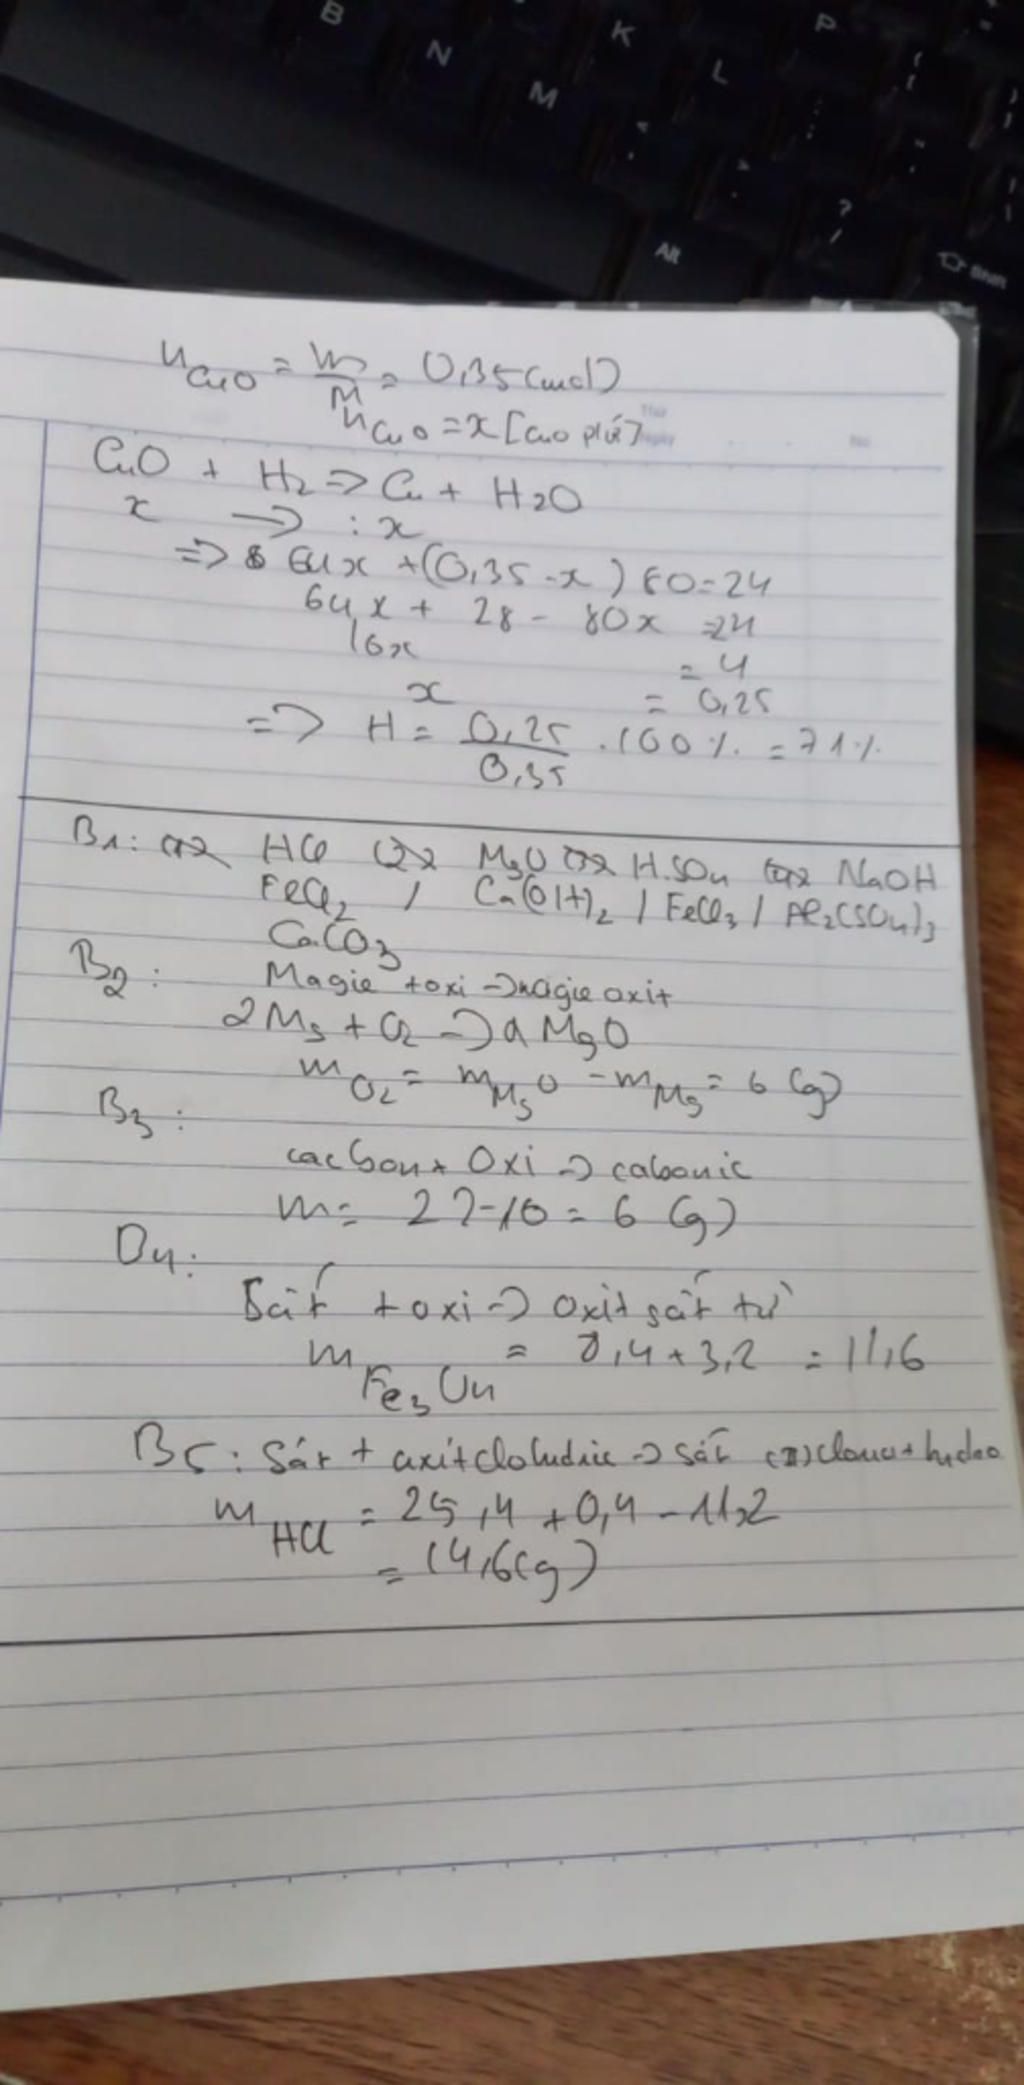 B
N
M
K
L
P
?
/
Alt
Shift
n CuO = m/M = 0,35 (mol)
n CuO = x [CuO pứ]
CuO + H2 => Cu + H2O
x -> : x
=> 64x + (0,35 - x) 80 = 24
64x + 28 - 80x = 24
16x = 4
x = 0,25
=> H = 0,25/0,35 . 100% = 71%
B1: HCl MgO H2SO4 NaOH
FeCl2 / Ca(OH)2 / FeCl3 / Al2(SO4)3
CaCO3
B2: Magie + oxi -> magie oxit
2Mg + O2 -> 2MgO
m O2 = m MgO - m Mg = 6 (g)
B3:
cacbon + Oxi -> cabonic
m = 22-16 = 6 (g)
B4:
Sắt + oxi -> oxit sắt từ
m Fe3O4 = 8,4 + 3,2 = 11,6
B5: Sắt + axit clohidric -> sắt (II) clorua + hidro
m HCl = 25,4 + 0,4 - 11,2
= 14,6 (g)